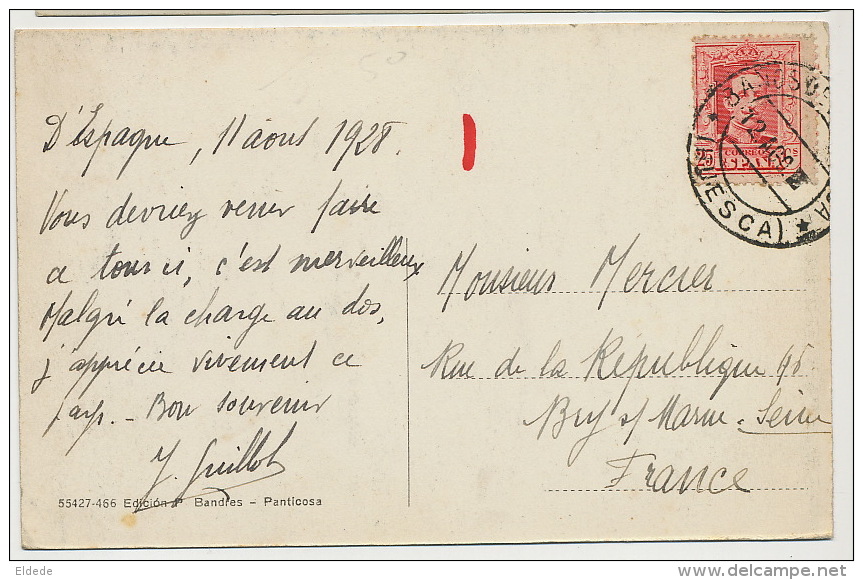 D'Espagne, 11 aout 1928.
Vous devriez venir faire
ce tour ci, c'est merveilleux
Malgré la charge au dos,
j'apprécie vivement ce
pays. - Bon souvenir
J. Guillot
55427-466 Edición P. Bandres - Panticosa
25 CORREOS Cs
ESPAÑA
(HUESCA)
Monsieur Mercier
Rue de la République 95
Bry s/ Marne - Seine
France
Eldede
delcampe.net